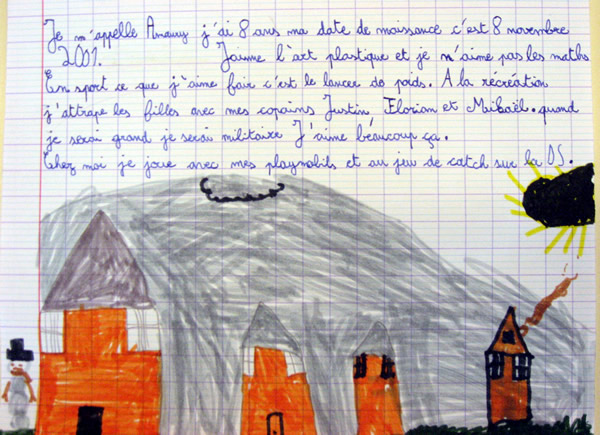 Je m'appelle Amaury j'ai 8 ans ma date de naissance c'est 8 novembre
2001. J'aime l'art plastique et je n'aime pas les maths
En sport ce que j'aime fair c'est le lancer do poids. A la récréation
j'attrape les filles avec mes copains Justin, Floriam et Mickaël. quand
je serai grand je serai militaire J'aime beaucoup ça.
Chez moi je joue avec mes playmobils et au jeu de catch sur la DS.